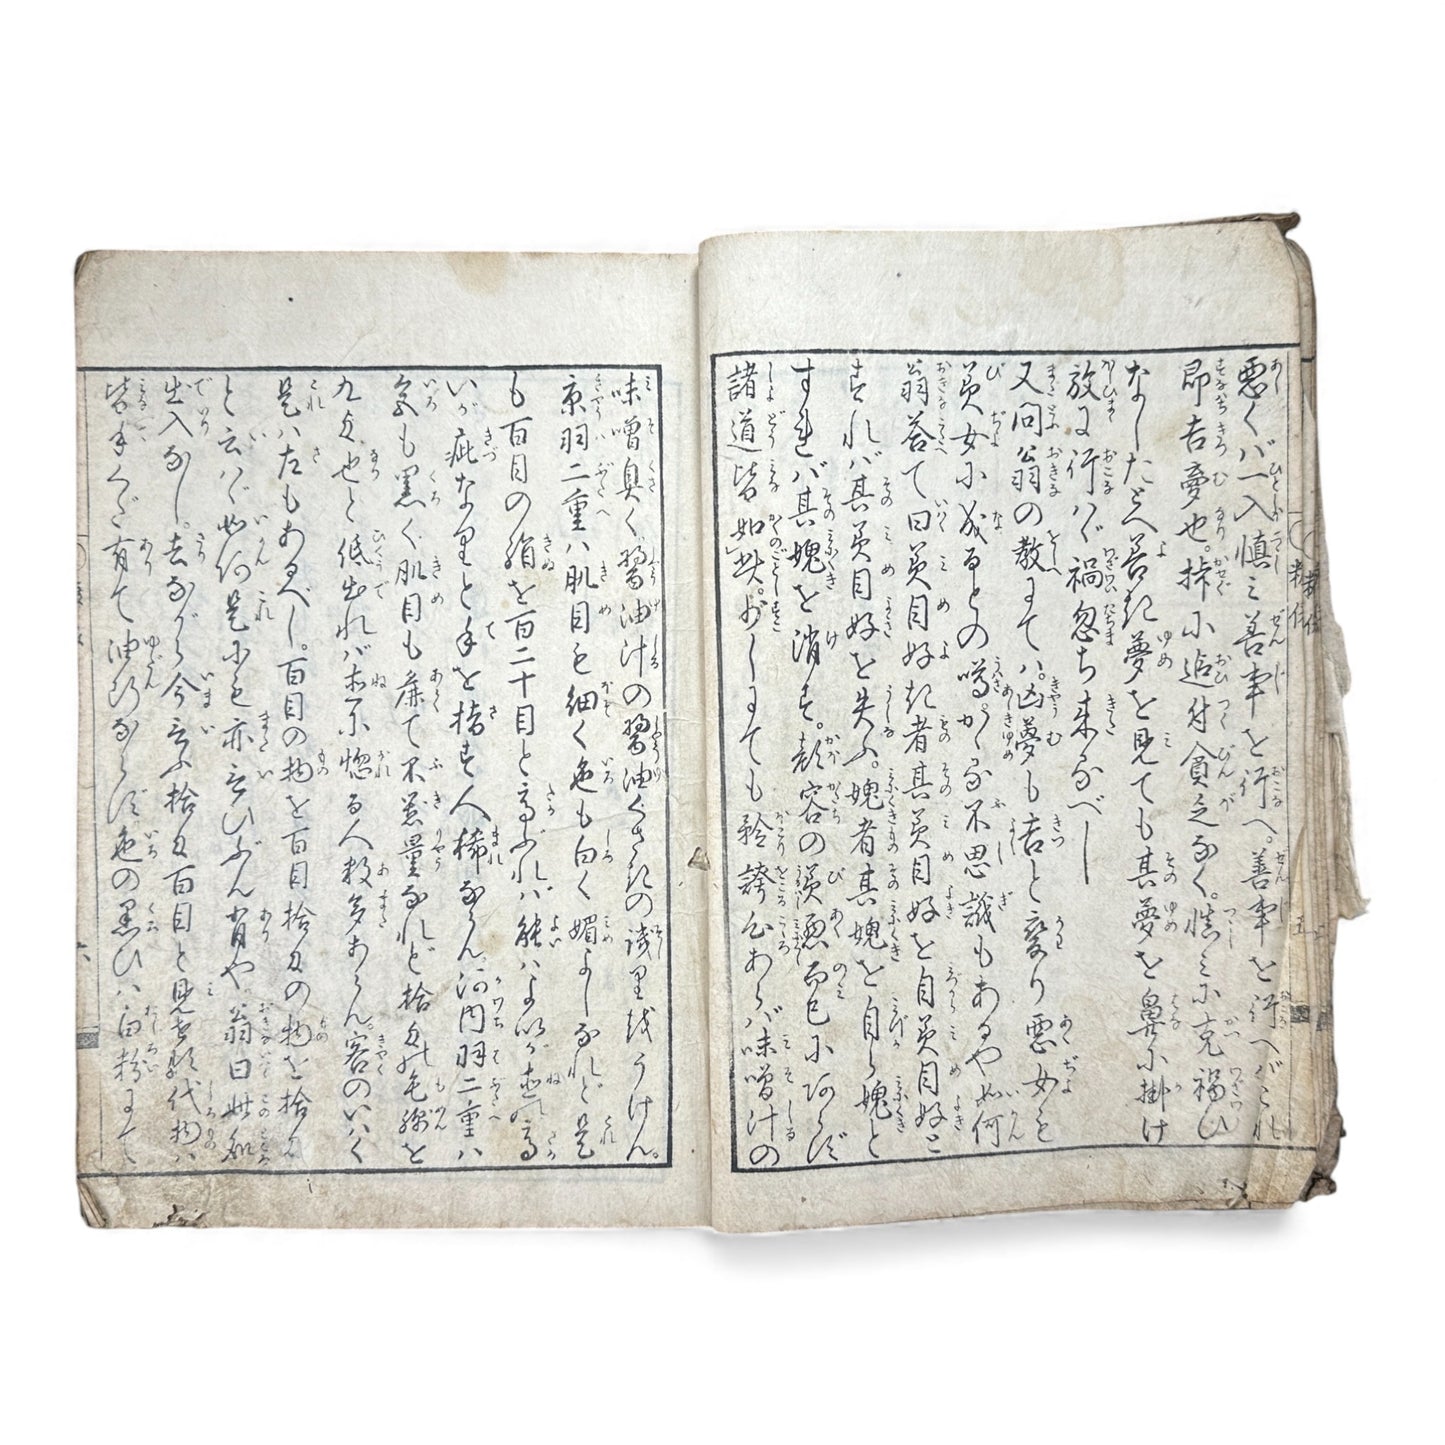 悪くバ一入慎ミ善事を行へ。善事を行へバこれ
即吉夢也。挊小追付貧乏なく。慎ミ小克禍ひ
なしたとへ善き夢を見ても其夢を鼻小掛け
放に行ハヾ禍忽ち来るべし
又問翁の教にてハ。凶夢も吉と変り悪女も
美女小成るとの噂。かゝる不思議もあるや如何
翁答て曰美目好き者其美目好を自美目好と
すれバ其美目好を失ふ。媿者其媿を自ら媿と
すれバ其媿を消す。顔容の美悪而已小あらず
諸道皆如此。少しにても矜誇心あらバ味噌汁の
味噌臭く醤油汁の醤油くさきの誹里越うけん。
京羽二重ハ肌目も細く色も白く媚よしなれど是
も百目の絹を百二十目と高ぶれバ能ハよいが直が高
いが疵なりと手を指す人稀ならん。河内羽二重ハ
色も黒く肌目も麁て不器量なれど拾匁の毛綿を
九匁也と低出れバ直小惚る人数多あらん。客のいハく
是ハ左もあるべし。百目の物を百目拾匁の物を拾匁
と云ハヾ如何是小も亦言ひぶん有や。翁曰世知
出入なし。去ながら今言ふ拾匁百目と見せる代物ハ
皆手くだ有て油断ならず色の黒ひハ白粉にて